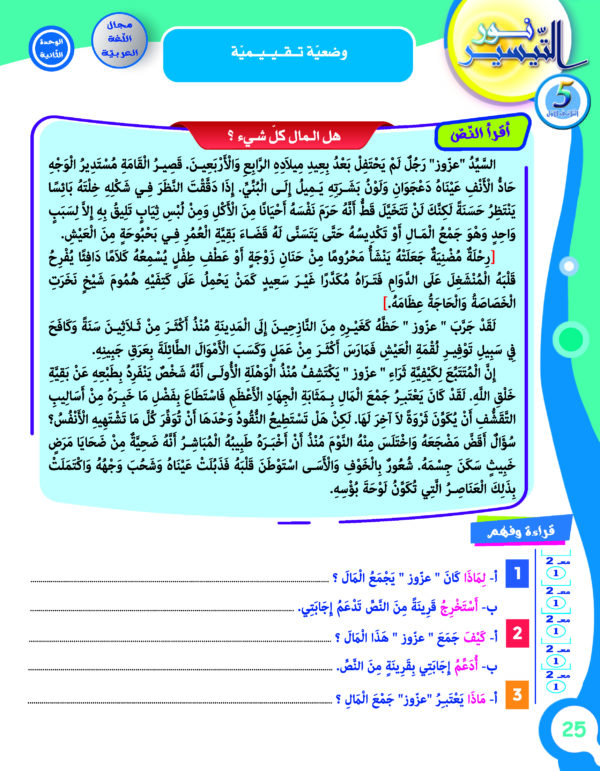 مجال
اللّغة
العربيّة
الوحدة
الثّانية
وضعيّة تـقـيـيـمـيّة
نور
التّيسير
5
أقرأ النّصّ
هل المال كلّ شيء ؟
السَّيِّدُ "عزّوز" رَجُلٌ لَمْ يَحْتَفِلْ بَعْدُ بِعِيدِ مِيلَادِهِ الرَّابِعِ وَالْأَرْبَعِينَ. قَصِيرُ الْقَامَةِ مُسْتَدِيرُ الْوَجْهِ
حَادُّ الْأَنْفِ عَيْنَاهُ دَعْجَاوَانِ وَلَوْنُ بَشَرَتِهِ يَمِيلُ إِلَى الْبُنِّيِّ. إِذَا دَقَّقْتَ النَّظَرَ فِي شَكْلِهِ خِلْتَهُ بَائِسًا
يَنْتَظِرُ حَسَنَةً لَكِنَّكَ لَنْ تَتَخَيَّلَ قَطُّ أَنَّهُ حَرَمَ نَفْسَهُ أَحْيَانًا مِنَ الْأَكْلِ وَمِنْ لُبْسِ ثِيَابٍ تَلِيقُ بِهِ إِلاَّ لِسَبَبٍ
وَاحِدٍ وَهُوَ جَمْعُ الْمَالِ أَوْ تَكْدِيسُهُ حَتَّى يَتَسَنَّى لَهُ قَضَاءَ بَقِيَّةِ الْعُمُرِ فِي بَحْبُوحَةٍ مِنَ الْعَيْشِ.
[رِحْلَةٌ مُضْنِيَةٌ جَعَلَتْهُ يَنْشَأُ مَحْرُومًا مِنْ حَنَانِ زَوْجَةٍ أَوْ عَطْفِ طِفْلٍ يُسْمِعُهُ كَلَامًا دَافِئًا يُفْرِحُ
قَلْبَهُ الْمُنْشَغِلَ عَلَى الدَّوَامِ فَتَرَاهُ مُكَدَّرًا غَيْرَ سَعِيدٍ كَمَنْ يَحْمِلُ عَلَى كَتِفَيْهِ هُمُومَ شَيْخٍ نَخَرَتِ
الْخَصَاصَةُ وَالْحَاجَةُ عِظَامَهُ.]
لَقَدْ جَرَّبَ "عزّوز" حَظَّهُ كَغَيْرِهِ مِنَ النَّازِحِينَ إِلَى الْمَدِينَةِ مُنْذُ أَكْثَرَ مِنْ ثَلَاثِينَ سَنَةً وَكَافَحَ
فِي سَبِيلِ تَوْفِيرِ لُقْمَةِ الْعَيْشِ فَمَارَسَ أَكْثَرَ مِنْ عَمَلٍ وَكَسَبَ الْأَمْوَالَ الطَّائِلَةَ بِعَرَقِ جَبِينِهِ.
إِنَّ الْمُتَتَبِّعَ لِكَيْفِيَّةِ ثَرَاءِ "عزوز" يَكْتَشِفُ مُنْذُ الْوَهْلَةِ الْأُولَى أَنَّهُ شَخْصٌ يَنْفَرِدُ بِطَبْعِهِ عَنْ بَقِيَّةِ
خَلْقِ اللَّهِ. لَقَدْ كَانَ يَعْتَبِرُ جَمْعَ الْمَالِ بِمَثَابَةِ الْجِهَادِ الْأَعْظَمِ فَاسْتَطَاعَ بِفَضْلِ مَا خَبِرَهُ مِنْ أَسَالِيبِ
التَّقَشُّفِ أَنْ يُكَوِّنَ ثَرْوَةً لاَ آخِرَ لَهَا. لَكِنْ هَلْ تَسْتَطِيعُ النُّقُودُ وَحْدَهَا أَنْ تُوَفِّرَ كُلَّ مَا تَشْتَهِيهِ الْأَنْفُسُ؟
سُؤَالٌ أَقَضَّ مَضْجَعَهُ وَاخْتَلَسَ مِنْهُ النَّوْمَ مُنْذُ أَنْ أَخْبَرَهُ طَبِيبُهُ الْمُبَاشِرُ أَنَّهُ ضَحِيَّةٌ مِنْ ضَحَايَا مَرَضٍ
خَبِيثٍ سَكَنَ جِسْمَهُ. شُعُورٌ بِالْخَوْفِ وَالْأَسَى اسْتَوْطَنَ قَلْبَهُ فَذَبُلَتْ عَيْنَاهُ وَشَحُبَ وَجْهُهُ وَاكْتَمَلَتْ
بِذَلِكَ الْعَنَاصِرُ الَّتِي تُكَوِّنُ لَوْحَةَ بُؤْسِهِ.
قراءة وفهم
1 أ- لِمَاذَا كَانَ "عزّوز" يَجْمَعُ الْمَالَ ؟
ب- أَسْتَخْرِجُ قَرِينَةً مِنَ النَّصِّ تَدْعَمُ إِجَابَتِي.
2 أ- كَيْفَ جَمَعَ "عزّوز" هَذَا الْمَالَ ؟
ب- أُدَعِّمُ إِجَابَتِي بِقَرِينَةٍ مِنَ النَّصِّ.
3 أ- مَاذَا يَعْتَبِرُ "عزّوز" جَمْعَ الْمَالِ ؟
معـ 2
1
معـ 2
1
معـ 2
1
معـ 2
1
معـ 2
1
25